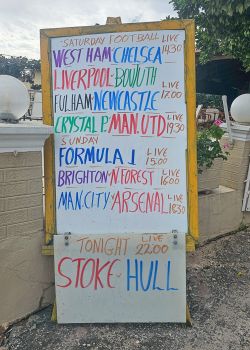 SATURDAY FOOTBALL LIVE
WEST HAM·CHELSEA 14.30
LIVERPOOL·BOW'UTH LIVE
FULHAM·NEWCASTLE 17.00
CRYSTAL P·MAN.UTD LIVE 19.30
SUNDAY
FORMULA 1 LIVE 15.00
BRIGHTON·N FOREST LIVE 16.00
MAN.CITY·ARSENAL LIVE 18.30
TONIGHT LIVE 22.00
STOKE·HULL